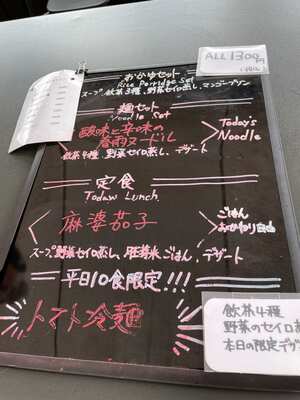 ALL 1300円
おかゆセット
Rice Porridge Set
スープ、飲茶3種、野菜セイロ蒸し、マンゴープリン
麺セット
Noodle Set
酸味と辛味の
春雨ヌードル
Today's
Noodle
飲茶4種 野菜セイロ蒸し、デザート
定食
Today Lunch
麻婆茄子
ごはん
おかわり自由
スープ、野菜セイロ蒸し、ごはん、デザート
平日10食限定!!!
トマト冷麺
飲茶4種
野菜のセイロ蒸
本日の限定デザ